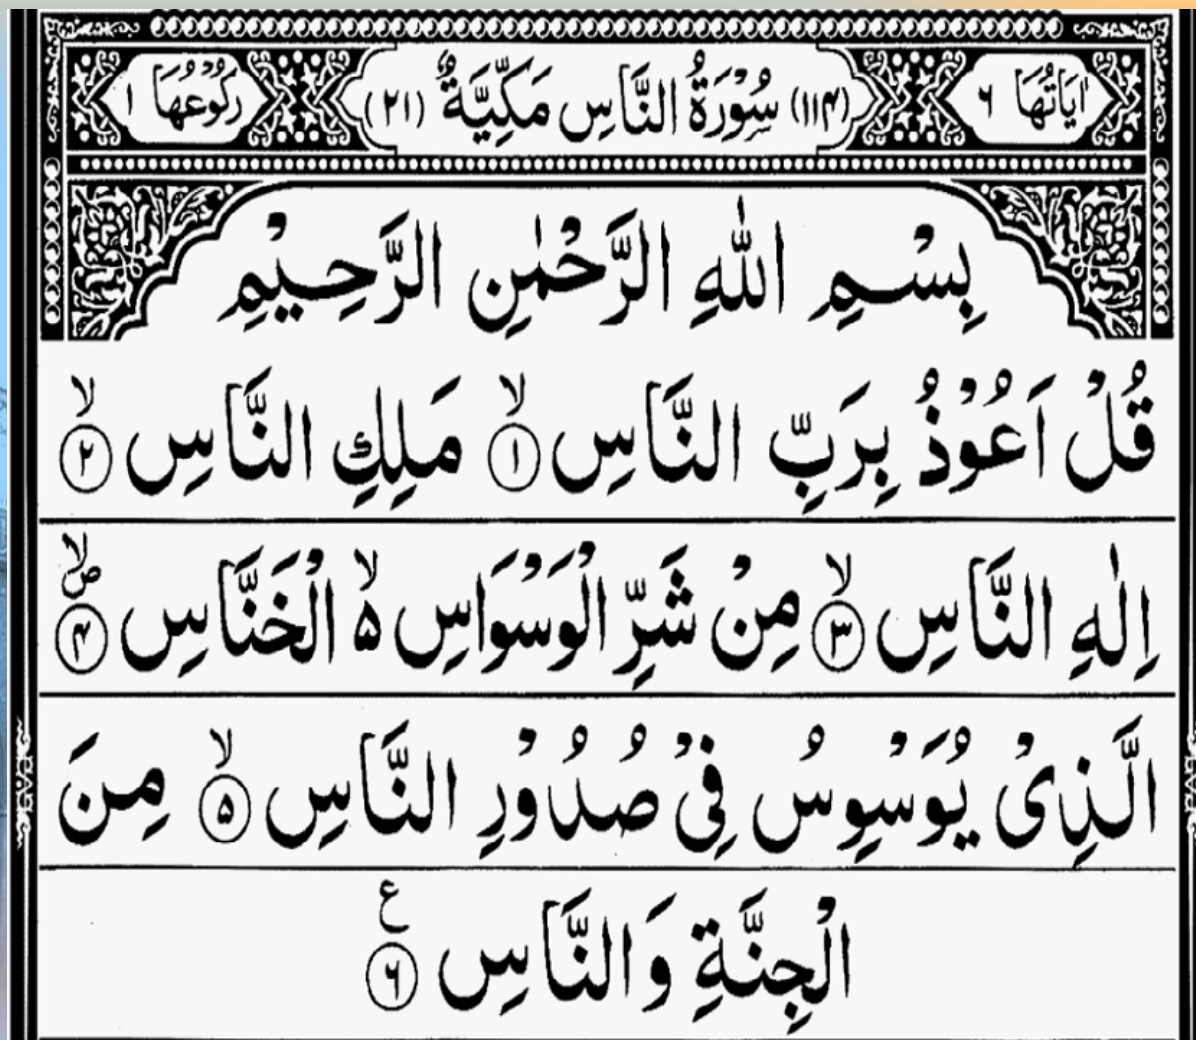 اٰيَاتُهَا ٦ (١١٤) سُوْرَةُ النَّاسِ مَكِّيَّةٌ (٢١) رُكُوْعُهَا ١
بِسْمِ اللّٰهِ الرَّحْمٰنِ الرَّحِيْمِ
قُلْ اَعُوْذُ بِرَبِّ النَّاسِ ۙ﴿١﴾ مَلِكِ النَّاسِ ۙ﴿٢﴾
اِلٰهِ النَّاسِ ۙ﴿٣﴾ مِنْ شَرِّ الْوَسْوَاسِ ۵ۙ الْخَنَّاسِ ۙص﴿۴﴾
الَّذِىْ يُوَسْوِسُ فِىْ صُدُوْرِ النَّاسِ ۙ﴿۵﴾ مِنَ
الْجِنَّةِ وَالنَّاسِ ع﴿٦﴾